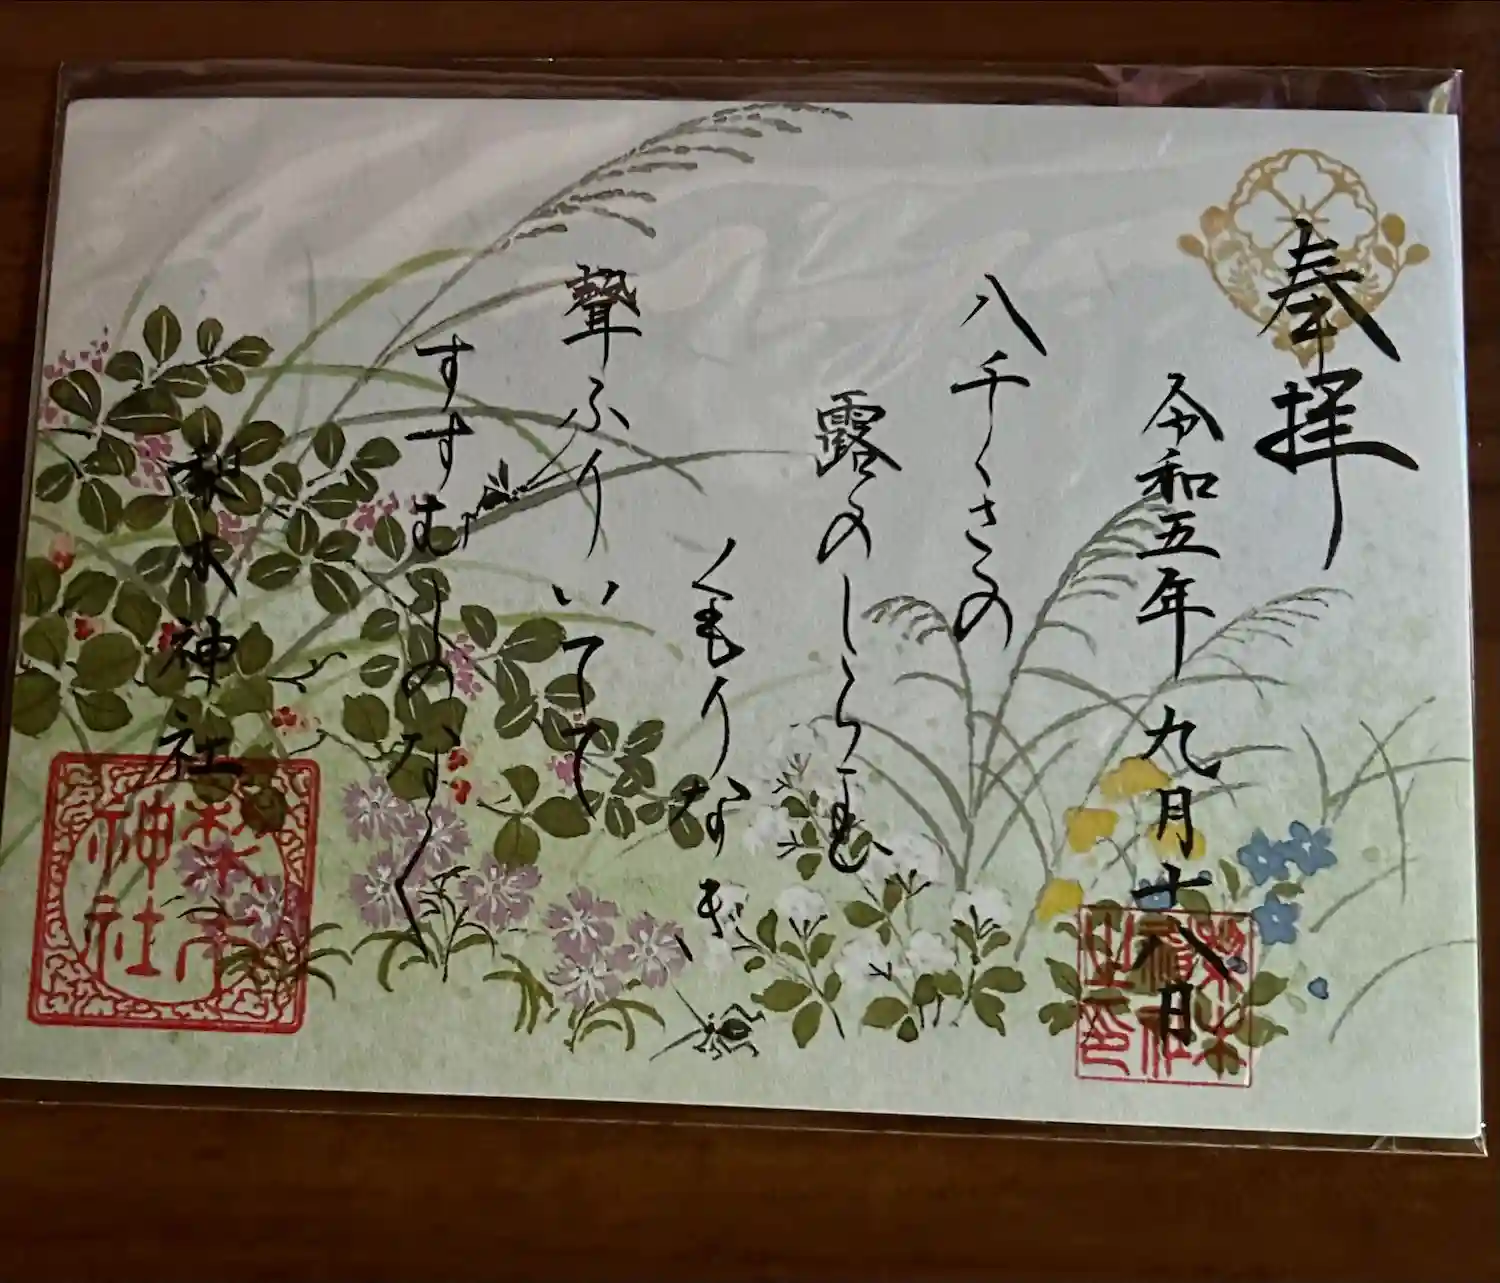 奉拝
令和五年九月十八日
八千くさの
露のしらへも
くもりなき
聲ふりいてて
すすむしのなく
梨木神社
梨木神社
梨木神社之印